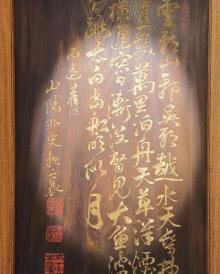 雲耶山耶吳耶越水天髣髴
青一髮萬里泊舟天草洋煙
橫篷窓日漸没瞥見大魚波
間跳太白當船明似月
西遊舊作
山陽外史賴襄